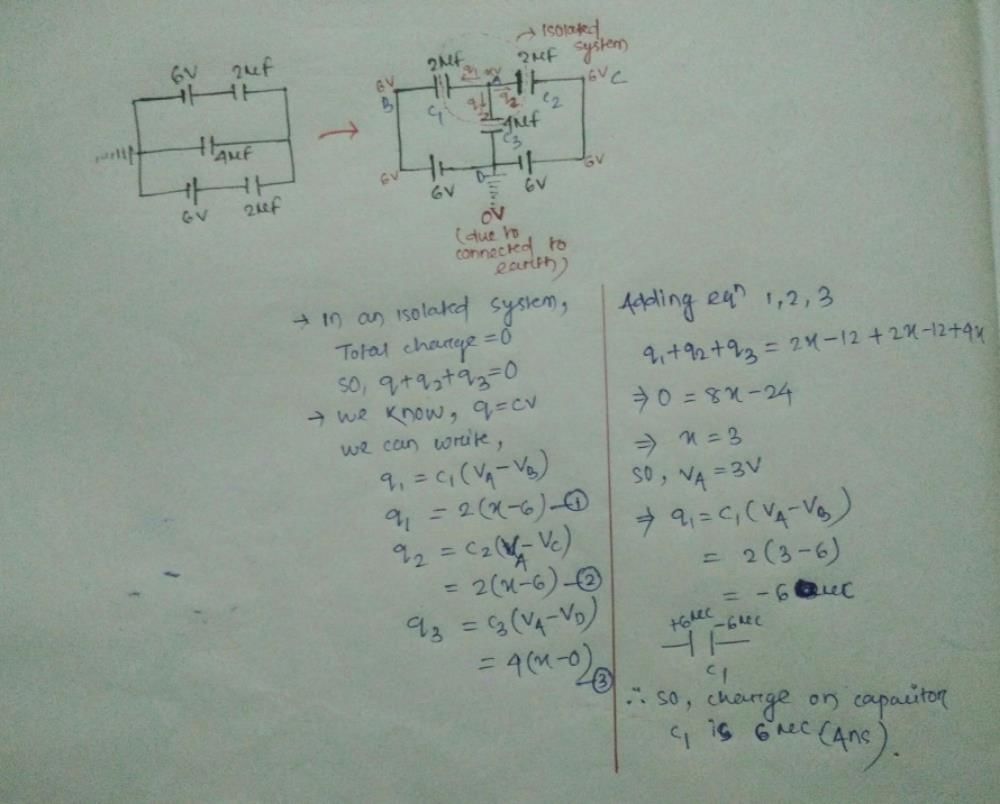 6V 2μf
4μf
6V 2μf
→ Isolated system
2μf 2μf
6V q1 xV A 6V C
B C1 q2 C2
q3 4μf
C3
6V D 6V
6V 6V
0V
(due to
connected to
earth)
→ In an isolated system,
Total charge = 0
so, q+q2+q3=0
→ we know, q=cv
we can write,
q1 = C1(VA-VB)
q1 = 2(x-6) —①
q2 = C2(VA-VC)
= 2(x-6) —②
q3 = C3(VA-VD)
= 4(x-0) —③
Adding eqn 1,2,3
q1+q2+q3 = 2x-12+2x-12+4x
⇒ 0 = 8x-24
⇒ x = 3
so, VA = 3V
⇒ q1 = C1(VA-VB)
= 2(3-6)
= -6 μc
+6μc -6μc
C1
∴ so, charge on capacitor
C1 is 6μc (Ans).